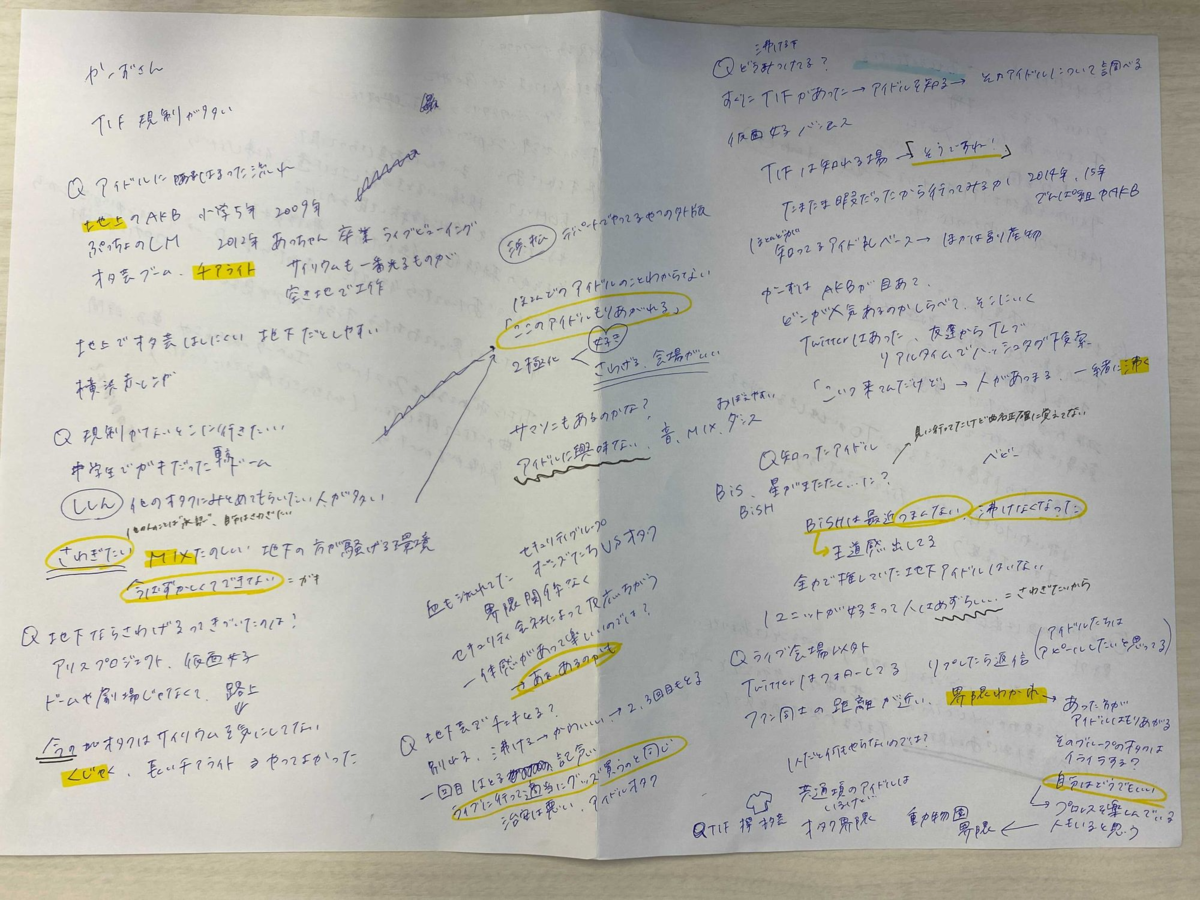 がーずさん
TIF 規制がダルい
Q アイドルに
流れ
地上のAKB 小学5年 2009年
ぷっちょのCM 2012年 あっちゃん 卒業 ライブビューイング
オタ芸ブーム、チアライト サイリウムも一番光るものが
空き地で工作
地上でオタ芸はしにくい 地下だとしやすい
横浜赤レンガ
Q 規制がないとこに行きたい
中学生でガキだった 東京ドーム
他のオタクにみとめてもらいたい人が多い
さわぎたい MIXたのしい 地下の方が騒げる環境
今はずかしくてできない = ガキ
Q 地下ならさわげるってきづいたのは?
アリスプロジェクト、仮面女子
ドームや劇場じゃなくて、路上
今のがオタクはサイリウムを気にしてない
くじゃく、長いチアライト
やってよかった
浜松 デパートでやってるやつのタト版
ほとんどのアイドルのことわからない
「ここのアイドルもりあがれる」
2極化 好き
さわげる、会場がいい
サマソニもあるのかな?
アイドルに興味ない、音、MIX、ダンス
おぼえやすい
セキュリティグループ
VS オタク
血も流れてた 界隈関係なく
セキュリティ会社によって反応ちがう
一体感があって楽しいのでは?
→ あるあるのかも
Q 地下芸でチェキとる?
別れる、沸ける→かわいい→2、3回目もとる
一回目はとる 記念
ライブに行って適当にグッズ買うのと同じ
治安は悪い、アイドルオタク
沸ける
Q どうみつけてる?
すでにTIFがあった→アイドルを知る→そのアイドルについて調べる
仮面女子
TIFは知れる場→「そうですね!」
たまたま暇だったから行ってみるか 2014年、15年
でんぱ組やAKB
知ってるアイドルベース→ほかは副産物
AKBが目あて、
どこが人気あるのかしらべて、そこにいく
Twitterはあった、友達からTLで
リアルタイムでハッシュタグ検索
「こいつ来てんだけど」→人があつまる、一緒に沸く
Q 知ったアイドル
見に行ってたけど曲名正確に覚えてない
BiS、星がまたたく…た?
BiSH
ベビー
BiSHは最近つまんない、沸けなくなった
王道感出してる
全力で推していた地下アイドルはいない
1ユニットが好きって人はめずらしい… = さわぎたいから
Q ライブ会場以外
Twitterはフォローしてる リプしたら返信
(アイドルたちは
アピールしたいと思ってる)
ファン同士の距離が近い、界隈わかれ
→あった方が
アイドルはもりあがる
そのグループのオタクは
イライラする?
自分はどうでもいい
プロレスを楽しんでいる
人もいると思う
1人だと何もやらないのでは?
共通項のアイドルは
いるけど
QTIF
オタク界隈 動物園
界隈